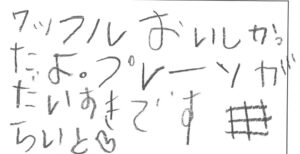 ワッフルおいしかっ
だよ。プレーンが
だいすきです
らいと